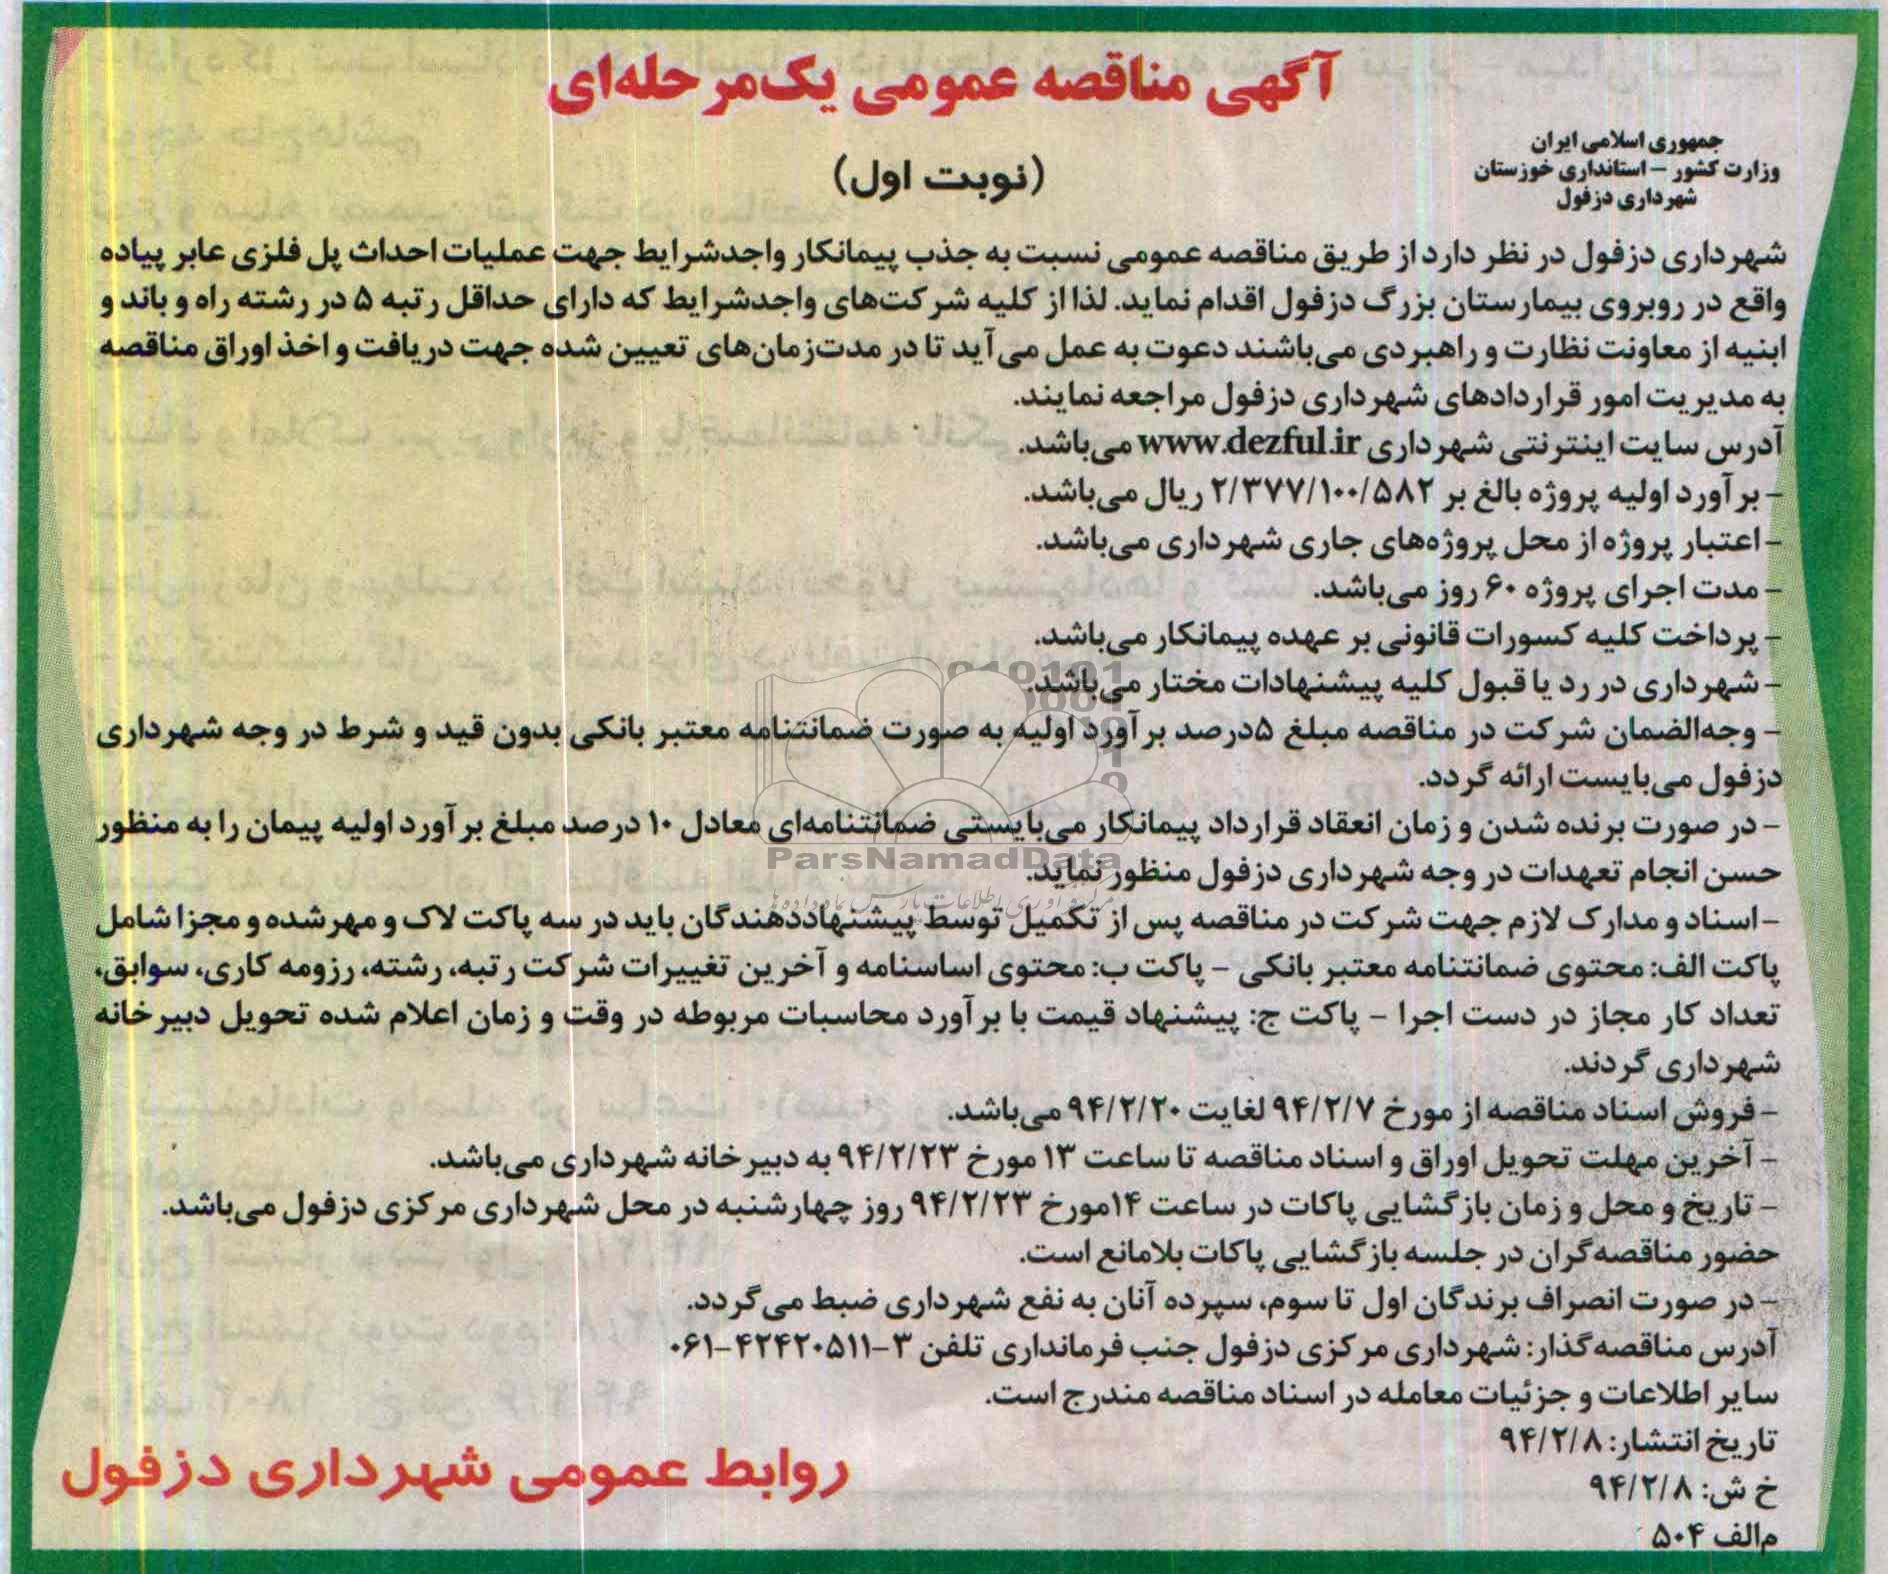 آگهی مناقصه عمومی یک‌مرحله‌ای
جمهوری اسلامی ایران
وزارت کشور – استانداری خوزستان
شهرداری دزفول
(نوبت اول)
شهرداری دزفول در نظر دارد از طریق مناقصه عمومی نسبت به جذب پیمانکار واجدشرایط جهت عملیات احداث پل فلزی عابر پیاده
واقع در روبروی بیمارستان بزرگ دزفول اقدام نماید. لذا از کلیه شرکت‌های واجدشرایط که دارای حداقل رتبه ۵ در رشته راه و باند و
ابنیه از معاونت نظارت و راهبردی می‌باشند دعوت به عمل می‌آید تا در مدت‌زمان‌های تعیین شده جهت دریافت و اخذ اوراق مناقصه
به مدیریت امور قراردادهای شهرداری دزفول مراجعه نمایند.
آدرس سایت اینترنتی شهرداری www.dezful.ir می‌باشد.
- برآورد اولیه پروژه بالغ بر ۲/۳۷۷/۱۰۰/۵۸۲ ریال می‌باشد.
- اعتبار پروژه از محل پروژه‌های جاری شهرداری می‌باشد.
- مدت اجرای پروژه ۶۰ روز می‌باشد.
- پرداخت کلیه کسورات قانونی بر عهده پیمانکار می‌باشد.
- شهرداری در رد یا قبول کلیه پیشنهادات مختار می‌باشد.
- وجه‌الضمان شرکت در مناقصه مبلغ ۵درصد برآورد اولیه به صورت ضمانتنامه معتبر بانکی بدون قید و شرط در وجه شهرداری
دزفول می‌بایست ارائه گردد.
- در صورت برنده شدن و زمان انعقاد قرارداد پیمانکار می‌بایستی ضمانتنامه‌ای معادل ۱۰ درصد مبلغ برآورد اولیه پیمان را به منظور
حسن انجام تعهدات در وجه شهرداری دزفول منظور نماید.
ParsNamadData
- اسناد و مدارک لازم جهت شرکت در مناقصه پس از تکمیل توسط پیشنهاددهندگان باید در سه پاکت لاک و مهرشده و مجزا شامل
پاکت الف: محتوی ضمانتنامه معتبر بانکی – پاکت ب: محتوی اساسنامه و آخرین تغییرات شرکت رتبه، رشته، رزومه کاری، سوابق،
تعداد کار مجاز در دست اجرا – پاکت ج: پیشنهاد قیمت با برآورد محاسبات مربوطه در وقت و زمان اعلام شده تحویل دبیرخانه
شهرداری گردند.
- فروش اسناد مناقصه از مورخ ۹۴/۲/۷ لغایت ۹۴/۲/۲۰ می‌باشد.
- آخرین مهلت تحویل اوراق و اسناد مناقصه تا ساعت ۱۳ مورخ ۹۴/۲/۲۳ به دبیرخانه شهرداری می‌باشد.
- تاریخ و محل و زمان بازگشایی پاکات در ساعت ۱۴مورخ ۹۴/۲/۲۳ روز چهارشنبه در محل شهرداری مرکزی دزفول می‌باشد.
حضور مناقصه‌گران در جلسه بازگشایی پاکات بلامانع است.
- در صورت انصراف برندگان اول تا سوم، سپرده آنان به نفع شهرداری ضبط می‌گردد.
آدرس مناقصه‌گذار: شهرداری مرکزی دزفول جنب فرمانداری تلفن ۳-۴۲۴۲۰۵۱۱-۰۶۱
سایر اطلاعات و جزئیات معامله در اسناد مناقصه مندرج است.
تاریخ انتشار: ۹۴/۲/۸
خ ش: ۹۴/۲/۸
م‌الف ۵۰۴
روابط عمومی شهرداری دزفول